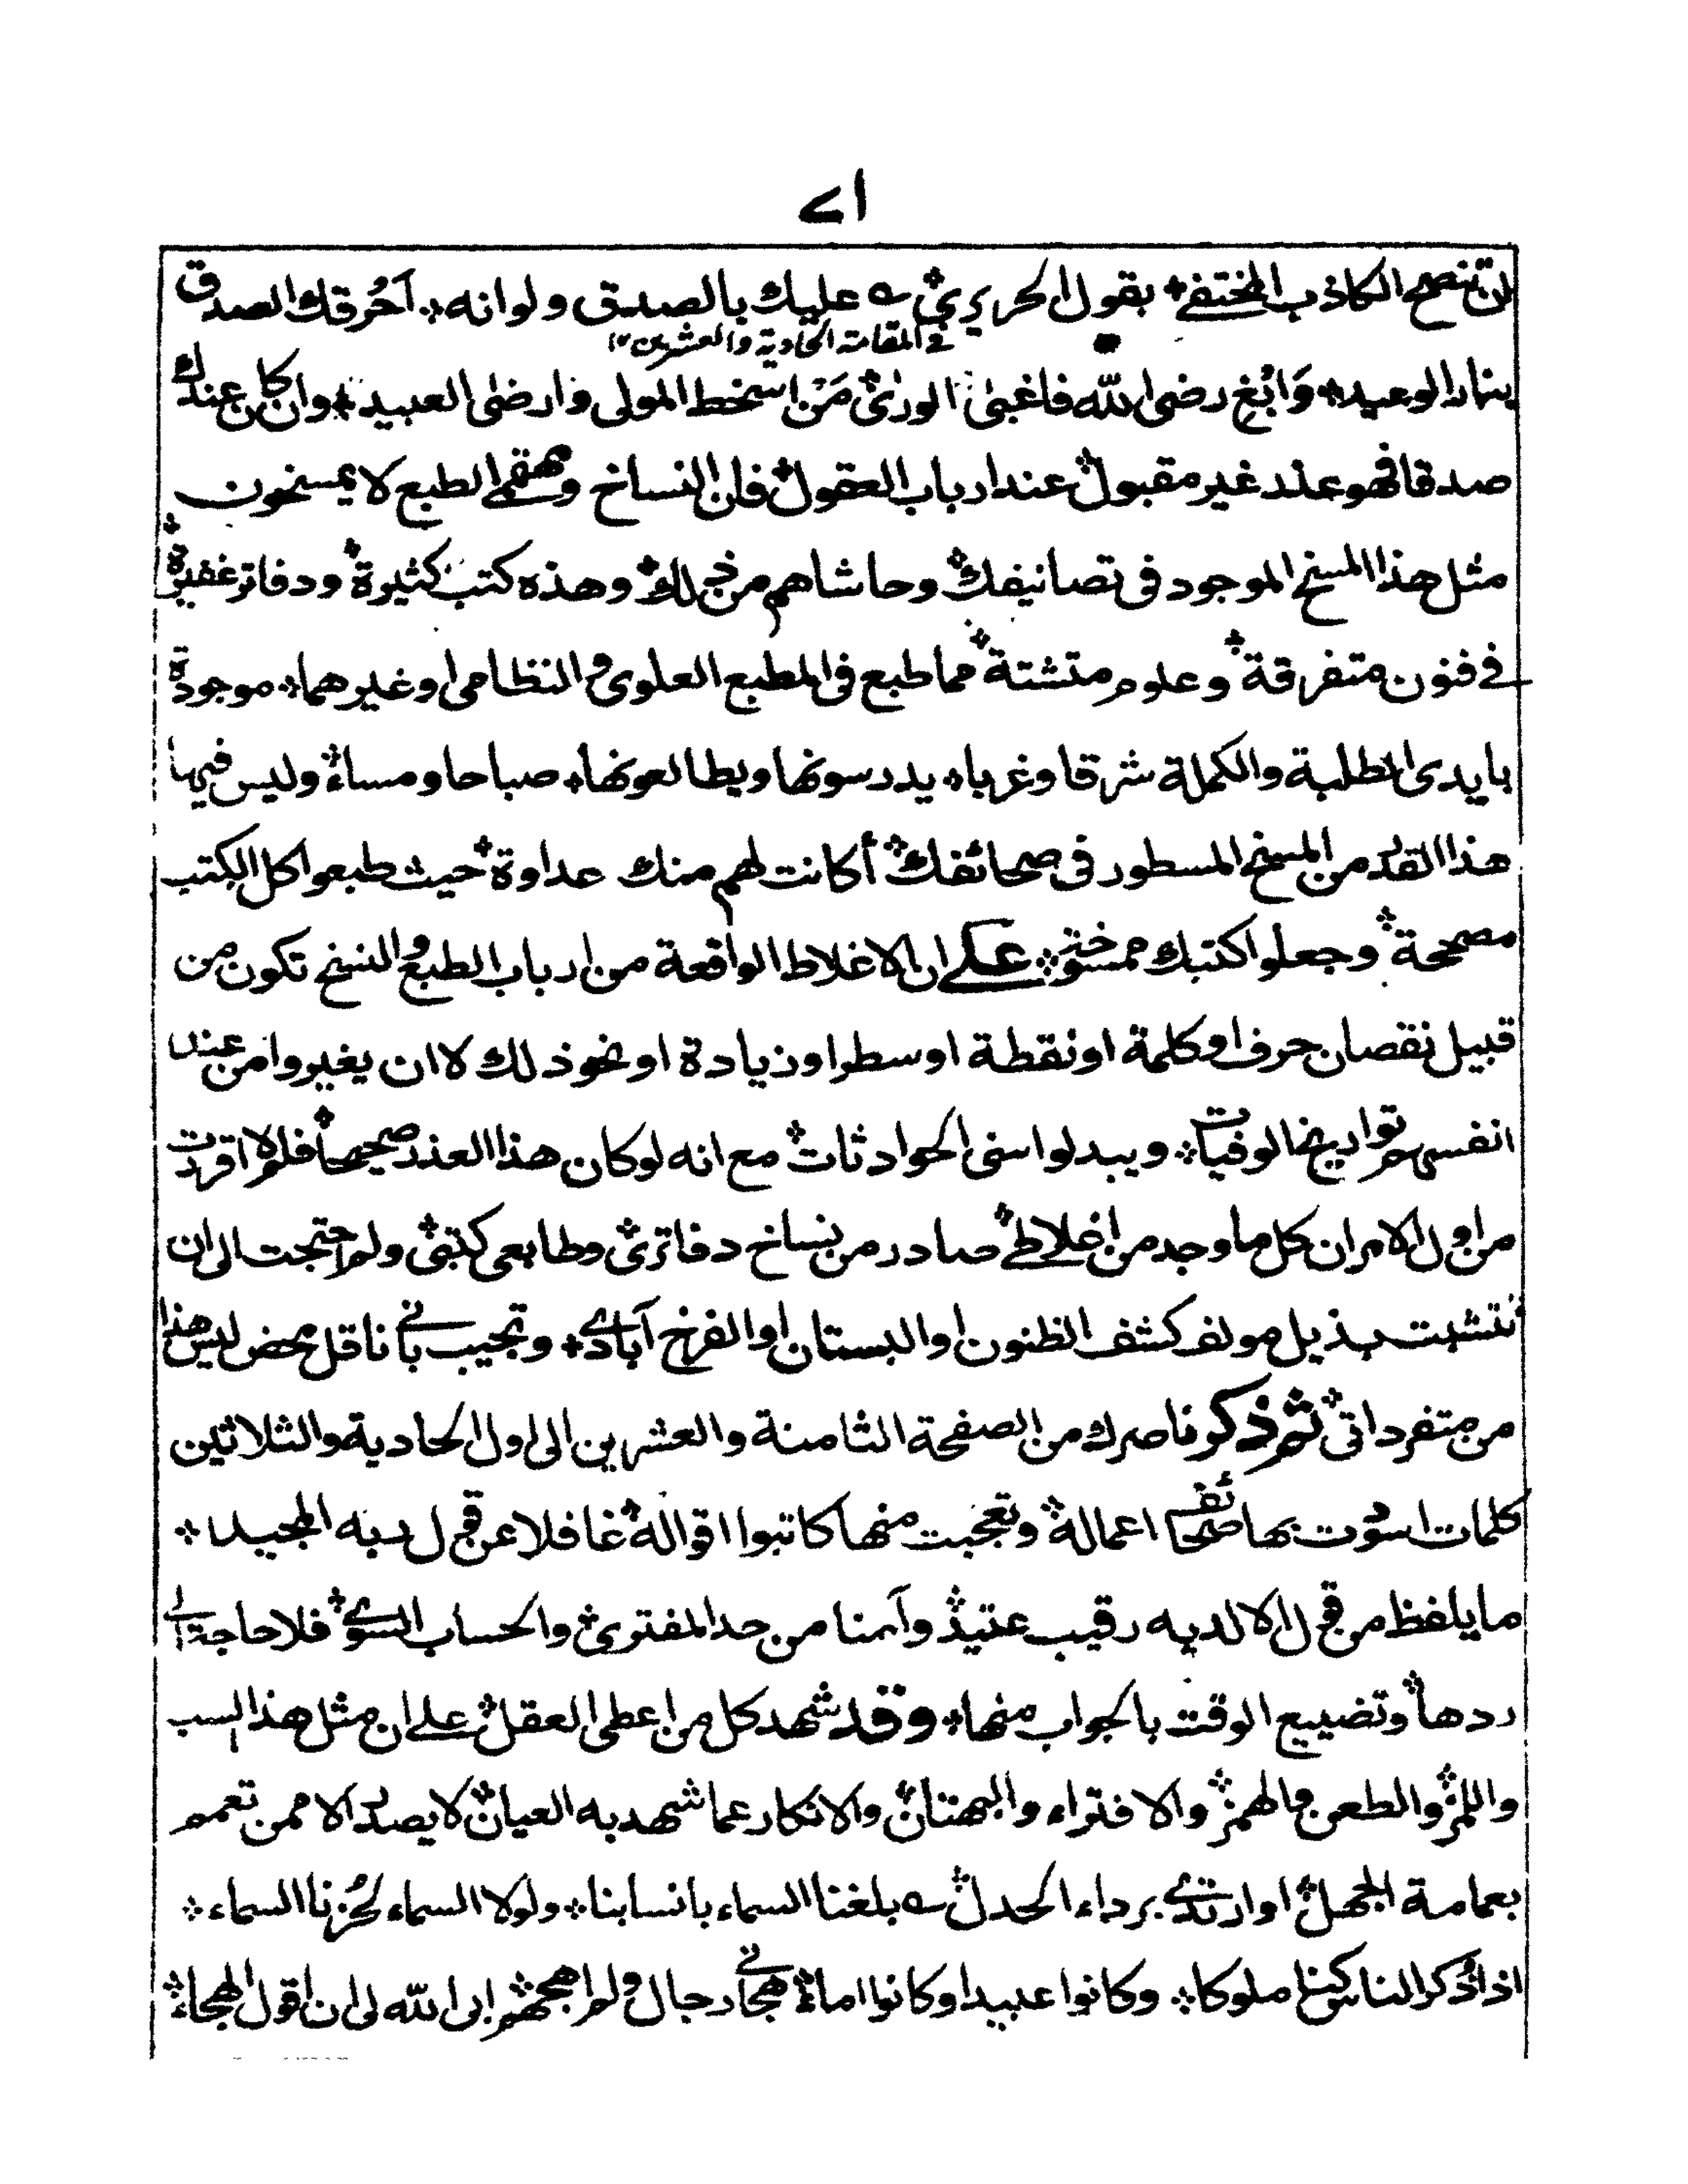 اے
ان تنصح الكاذب المختفے٭ بقول الحريري٭ ؎ عليك بالصدق ولو انه٭ اَحْرقك الصدق
في المقامة الحادية والعشرين ١٢
بنار الوعيد٭ وَابْغِ رضى الله فاغبى الورى٭ مَنْ اسخط المولى وارضى العبيد٭ وان كان عندك
صدقا فهو عذر غير مقبول٭ عند ارباب العقول٭ فان النساخ ومصححى الطبع لا يمسخون
مثل هذا المسخ الموجود فى تصانيفك٭ وحاشاهم من ذلك٭ وهذه كتب كثيرة٭ ودفاتر غفيرة٭
فے فنون متفرقة٭ وعلوم متشتتة٭ مما طبع فى المطبع العلوى والنظامى او غيرهما٭ موجودة
بايدى الطلبة والكملة شرقا وغربا٭ يدرسونها ويطالعونها٭ صباحا ومساء٭ وليس فيها
هذا القدر من المسخ المسطور فى صحائفك٭ أكانت لهم منك عداوة٭ حيث طبعوا كل الكتب
مصححة٭ وجعلوا كتبك ممسوختہ٭ علے ان الاغلاط الواقعة من ارباب الطبع والنسخ تكون من
قبيل نقصان حرف او كلمة او نقطة او سطر او زيادة او نحو ذلك لا ان يغيروا من عند
انفسهم تواريخ الوفيات٭ ويبدلوا سنى الحوادثات٭ مع انه لو كان هذا العذر صحيحا٭ فلم لا اقررت
من اول الامر ان كل ما وجد من اغلاطے٭ صادر من نساخ دفاترى٭ وطابعى كتبى٭ ولم احتجت الى ان
تتشبث بذيل مولف كشف الظنون او البستان او الفرخ آبادے٭ وتجيب بانے ناقل محض ليس هذا
من متفرداتى٭ ثم ذكر ناصرك من الصفحة الثامنة والعشرين الى اول الحادية والثلاثين
كلمات اسودت بها صحائف اعماله٭ وتعجبت منها كاتبوا اقواله٭ غافلا عن قول ربه المجيد٭
ما يلفظ من قول الا لديه رقيب عتيد٭ وآمنا من حد المفترى٭ والحساب السوے٭ فلا حاجة الے
ردها٭ وتضييع الوقت بالجواب منها٭ وقد شهد كل من اعطى العقل٭ علے ان مثل هذا السب
واللمز٭ والطعن والهمز٭ والافتراء والبهتان٭ والانكار عما شهد به العيان٭ لا يصدر الا ممن تعمم
بعمامة الجهل٭ او ارتدے برداء الجدل٭ ؎ بلغنا السماء بانسابنا٭ ولولا السماء لَجُزْنا السماء٭
اذا ذُكر الناس كنا ملوكا٭ وكانوا عبيدا وكانوا اماء٭ هجانے رجال ولم اهجهم٭ ابى الله لى ان اقول الهجاء٭